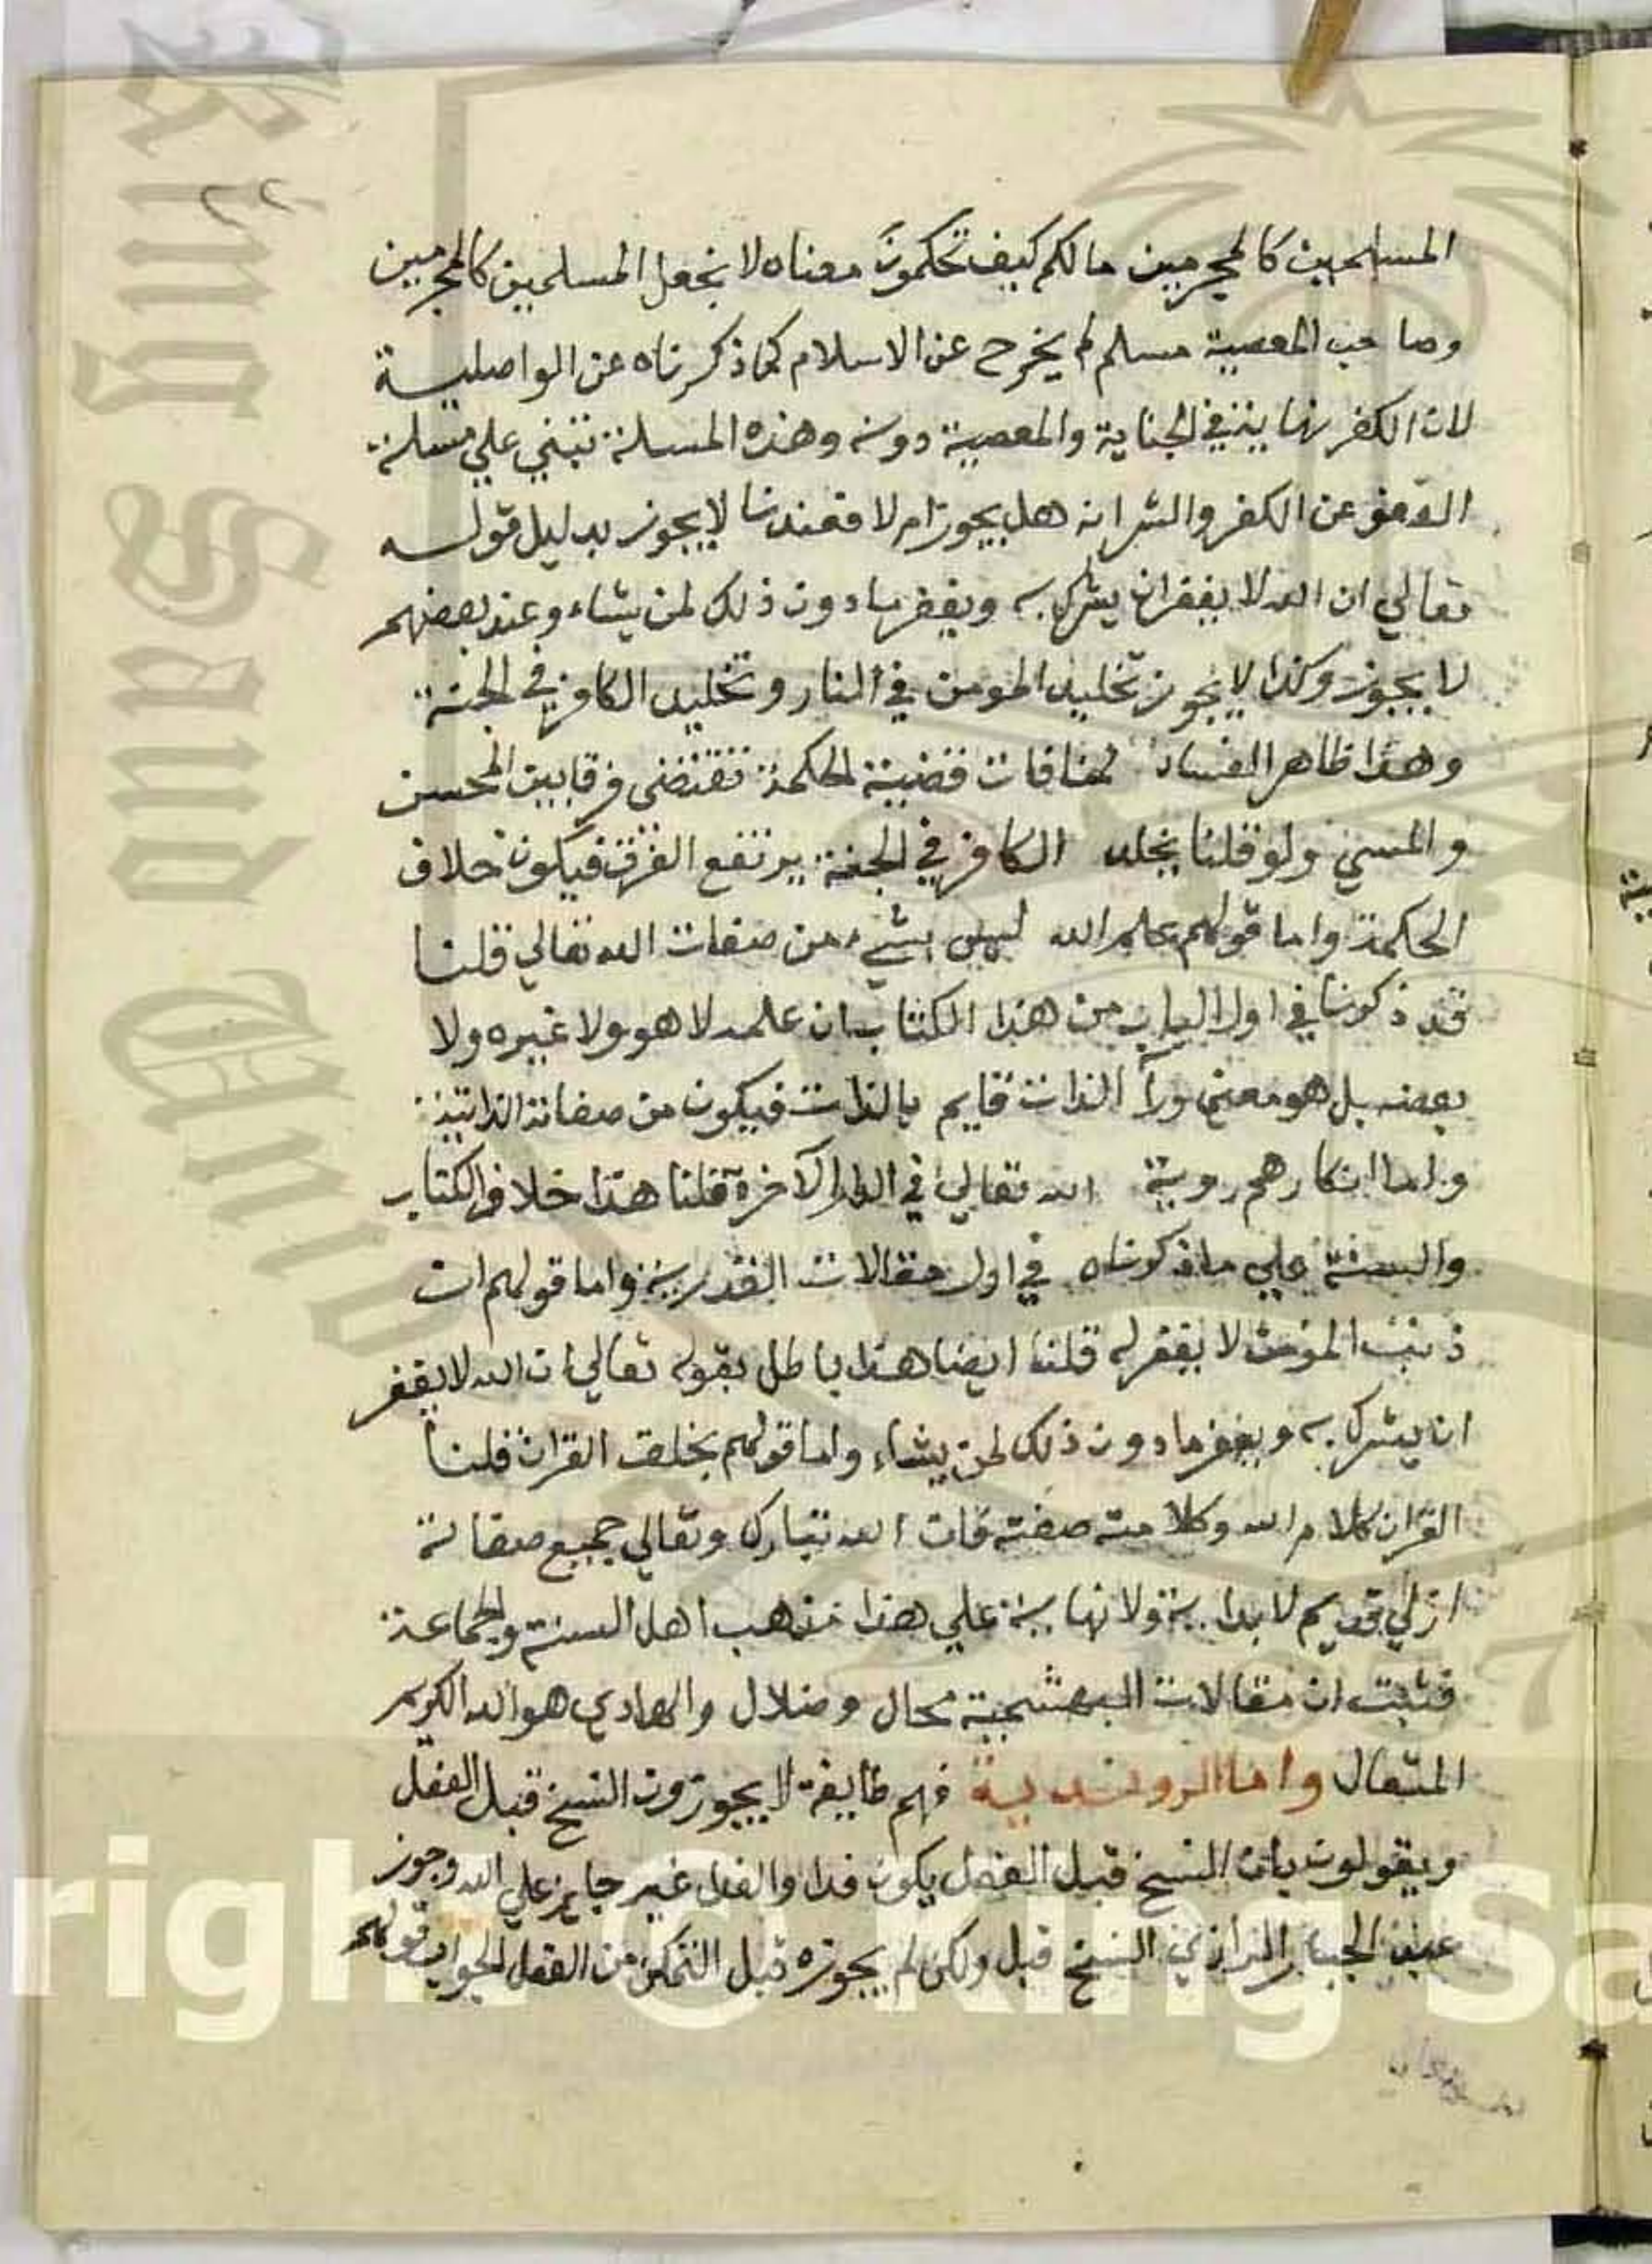 المسلمين كالمجرمين مالكم كيف تحكمون معناه لا نجعل المسلمين كالمجرمين
وصاحب المعصية مسلم لم يخرج عن الاسلام كما ذكرناه عن الواصلية
لان الكفر نهاية في الجناية والمعصية دونه وهذه المسلة تبتني علي مسلة
العفو عن الكفر والشرانه هل يجوز ام لا فعندنا لا يجوز بدليل قوله
تعالي ان الله لا يغفر ان يشرك به ويغفر ما دون ذلك لمن يشاء وعند بعضهم
لا يجوز وكذا لا يجوز تخليد المومن في النار وتخليد الكافر في الجنة
وهذا ظاهر الفساد لمنافات قضية الحكمة تقتضي فرقا بين المحسن
والمسي ولو قلنا بخلد الكافر في الجنة يرتفع الفرق فيكون خلاف
الحكمة واما قولهم علم الله ليس بشيء من صفات الله تعالي قلنا
قد ذكرنا في اول الباب من هذا الكتاب ان علمه لا هو ولا غيره ولا
بعضه بل هو معني ورآ الذات قايم بالذات فيكون من صفاته الذاتية
واما انكارهم روية الله تعالي في الدار الآخرة قلنا هذا خلاف الكتاب
والسنة علي ما ذكرناه في اول مقالات القدرية واما قولهم ان
ذنب المؤمن لا يغفر له قلنا ايضا هذا باطل بقوله تعالي ان الله لا يغفر
ان يشرك به ويغفر ما دون ذلك لمن يشاء واما قولهم بخلق القران قلنا
القران كلام الله وكلامه صفته فان الله تبارك وتعالي جميع صفاته
ازلي قديم لا بداية ولا نهاية علي هذا مذهب اهل السنة والجماعة
فثبت ان مقالات البهشمية محال وضلال والهادي هو الله الكريم
المتعال واما الروندية فهم طايفة لا يجوزون النسخ قبل الفعل
ويقولون بان النسخ قبل الفعل يكون فدا والفدا غير جايز علي الله وجوز
عبد الجبار الرازي النسخ قبل ولكن لم يجوزه قبل التمكن من الفعل الجواب قولهم
King Saud Univ
1957
right © King Sa